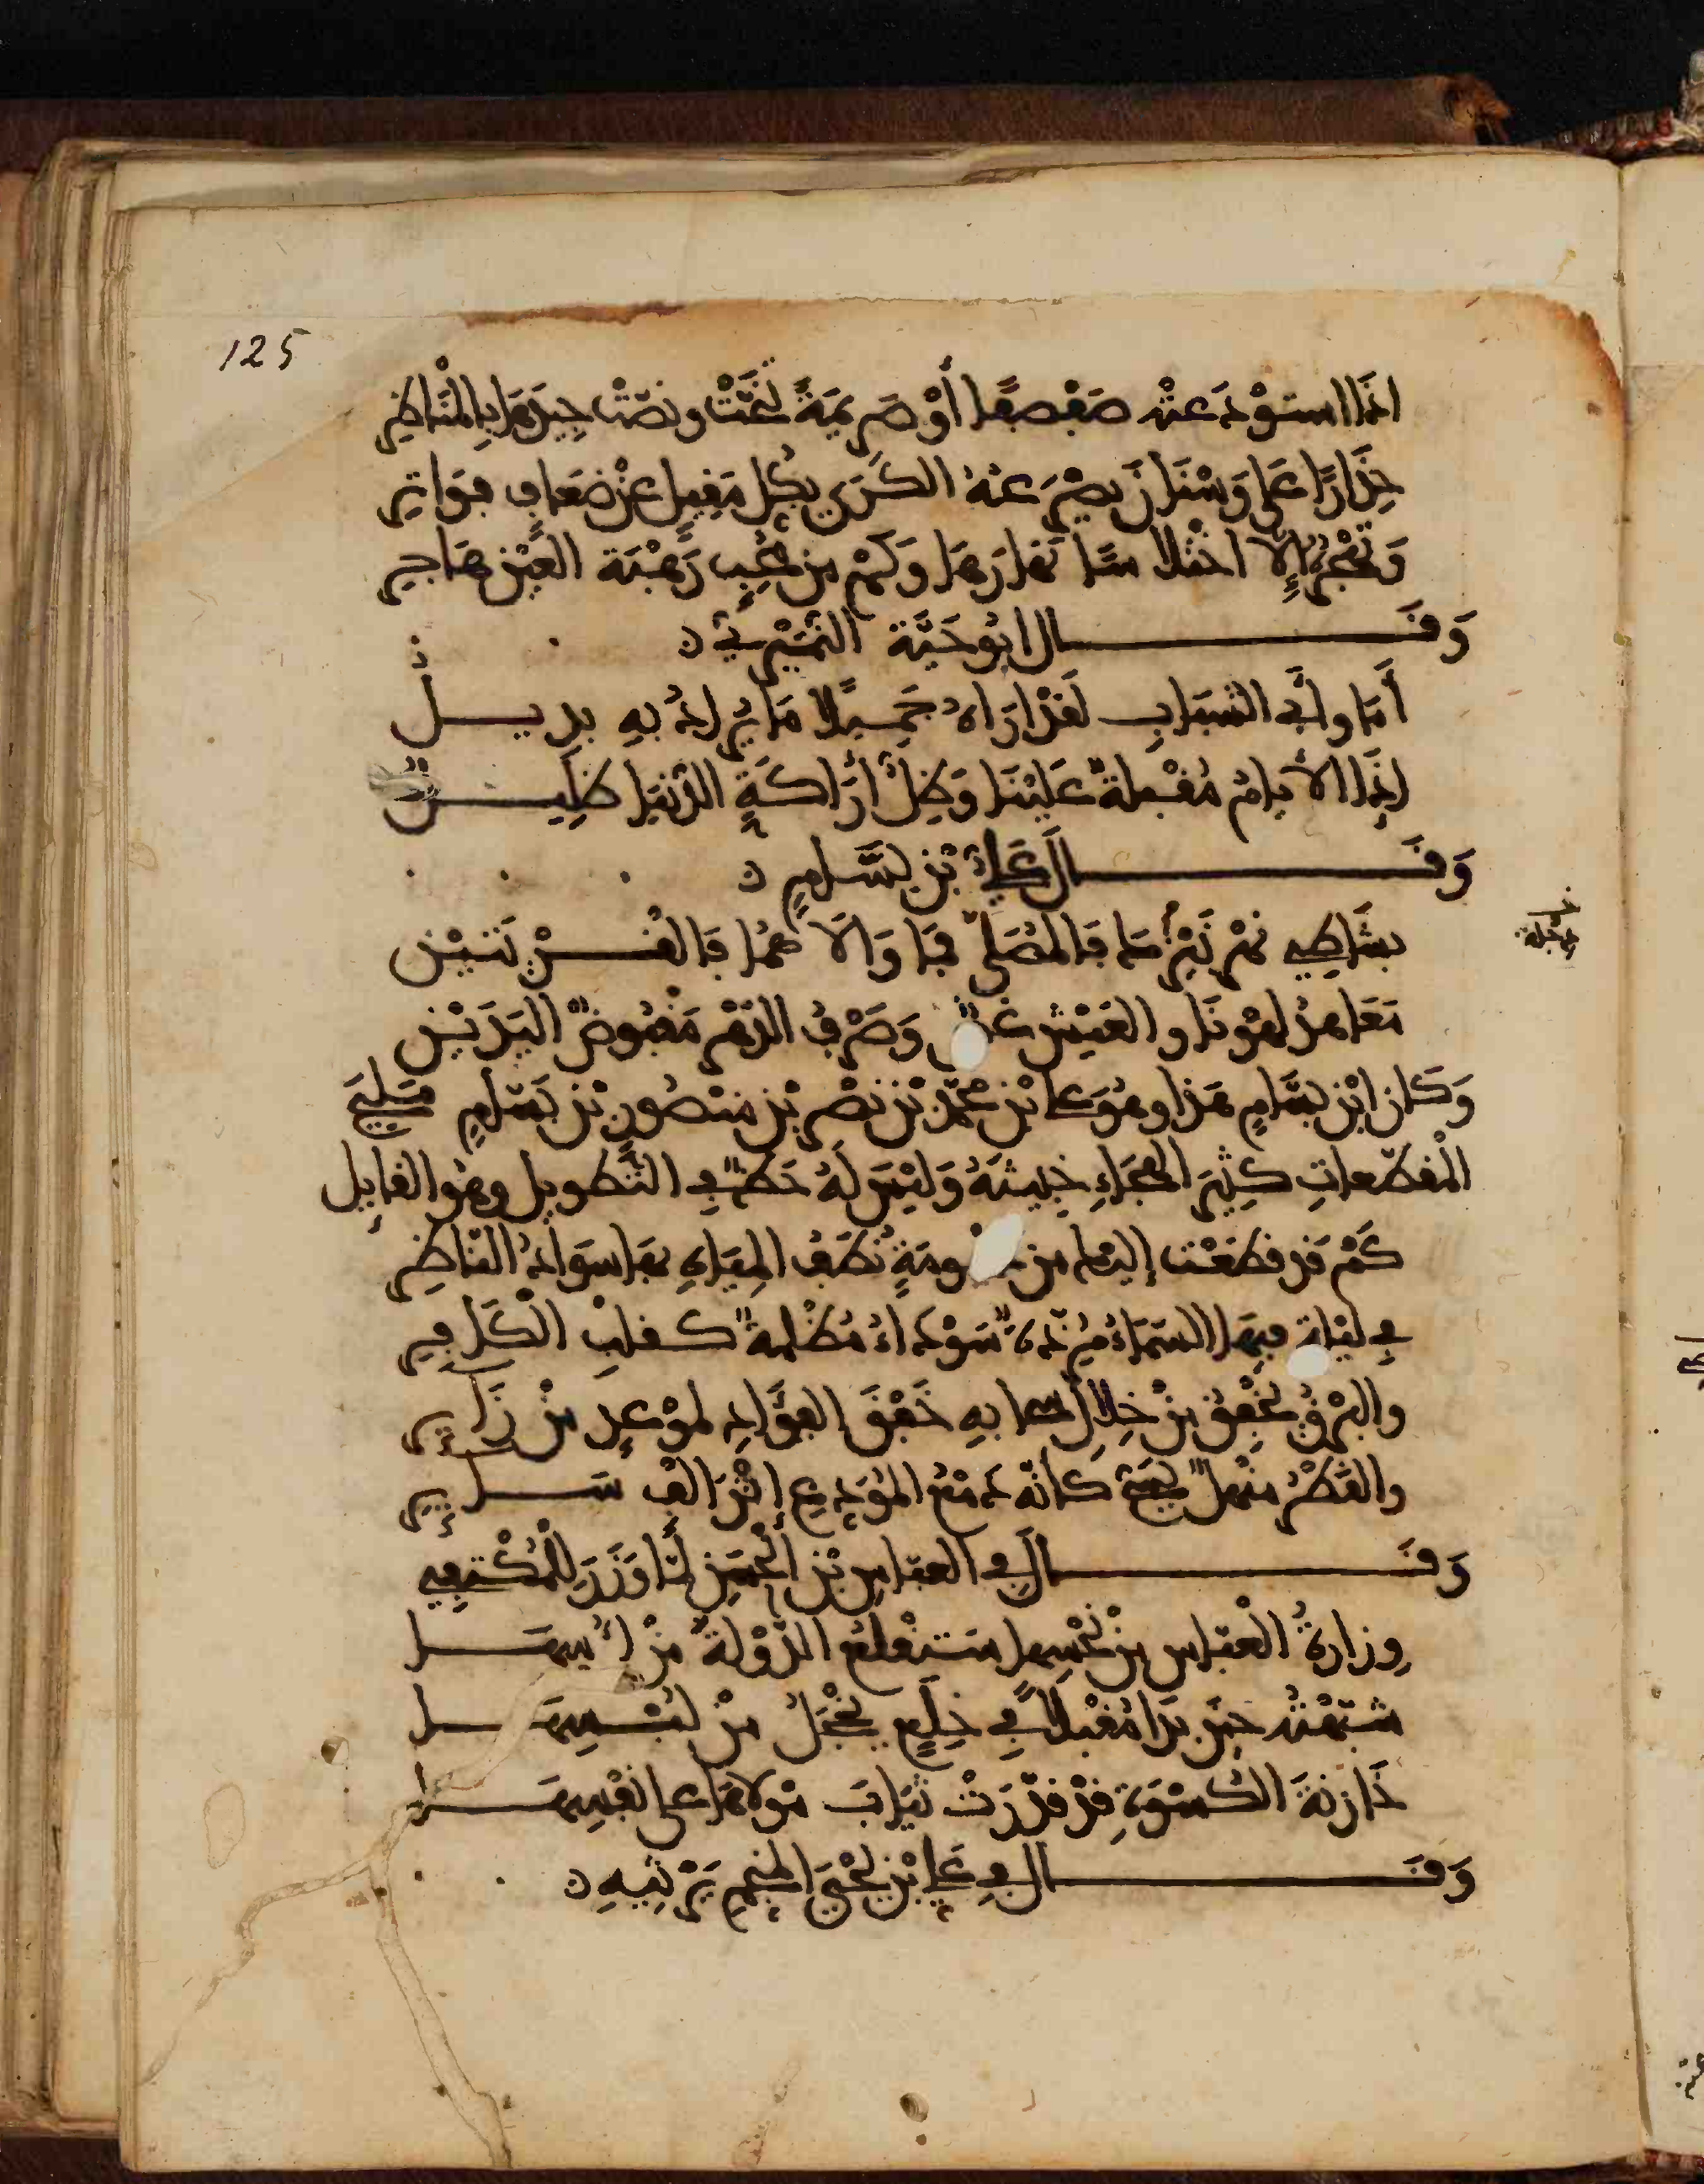 125
اذَا استَوْدَعتْه صَفْصفًا أوْ صَرِيمَةً تَنَحَّتْ ونصّتْ جِيدَهَا بِالْمَنَاظِرِ
حِذَارًا عَلى وَسْنَانَ يصْرَعهُ الكَرَى بِكلِّ مَقِيلٍ عنْ ضعَافٍ فوَاتِرِ
وَتَهْجُرُهُ إلاّ اختْلاسًا نَهارَهَا وَكَمْ من مُحِبٍ رَهْبَةَ العَيْنِ هَاجِرِ
وَقَـــال ابُو حَيَّةَ النُّمَيْرِيُّ
أَمَا وأبِي الشبَابِ لَقَدْ ارَاهُ جَمِيلًا مَا يُرادُ بِهِ بدِيـلُ
إذَا الأيامُ مُقْبلةٌ عَلَيْنَا وَظِلُّ أرَاكَةِ الدّنيَا ظلِيـلُ
وَقَـــالَ عَلِيُّ بْن بَسَّامٍ
بشَاطِي نهْرِ فَالمُصَلى فمَا وَالاَهُمَا فَالقَـرْيَتَيْنِ
خ دجْلَة
مَعَاهدُ لهْونَا والعَيْش غضٌّ وَصَرْفُ الدّهْرِ مَقْبُوضُ اليَدَيْنِ
وَكَان ابْن بسَّامٍ هَذا وهُوَ على بْن مُحمَّد بْن نصْرِ بْن مَنْصُورِ بْن بَسّامٍ مَلِيحَ
الْمقَطّعاتِ كثِيرَ الهجَاءِ خبِيثَهُ وَليْسَ لَهُ حَظّ فِي التَّطوِيل وهُو القايِل
كَمْ قَدْ قطَعْت إليْك من ومَةٍ نُطَفُ المِيَاهِ بهَا سَوَادُ النّاظِرِ
فِي ليْلَةٍ فيهَا السّمَاءُ مُرِذَّةٌ سَوْدَاءُ مُظْلِمةٌ كقلْبِ الْكَافِرِ
والبَرْقُ يَخْفِقُ منْ خِلالِ سَحابهِ خَفْقَ الفؤَادِ لموْعِدٍ منْ زَايِرِ
والقَطْرُ منْهَلٌّ يسُحُّ كانّهُ دمْعُ المُودِّعِ إثْرَ الْفٍ سَـايِرِ
وَقَـــالَ فِي العبّاسِ بْن الْحسَنِ لَمّا وَزَرَ لِلْمُكْتَفِي
وِزارةُ الْعبّاسِ منْ نحْسِها سَتَقْلَعُ الدّوْلةَ منْ اسّهَـا
شبّهْتُه حينَ بَدَا مُقْبلًا فِي خلَعٍ يخْجَلُ منْ لُبْسِهَـا
خَازِنَةَ الكُسْوَةِ قَدْ قَدَّرَتْ ثيَابَ موْلاَهَا على نَفْسِهَـا
وَقَـــالَ فِي عَلِي بْن يَحْيَى المنجّم يَرْثِيهِ